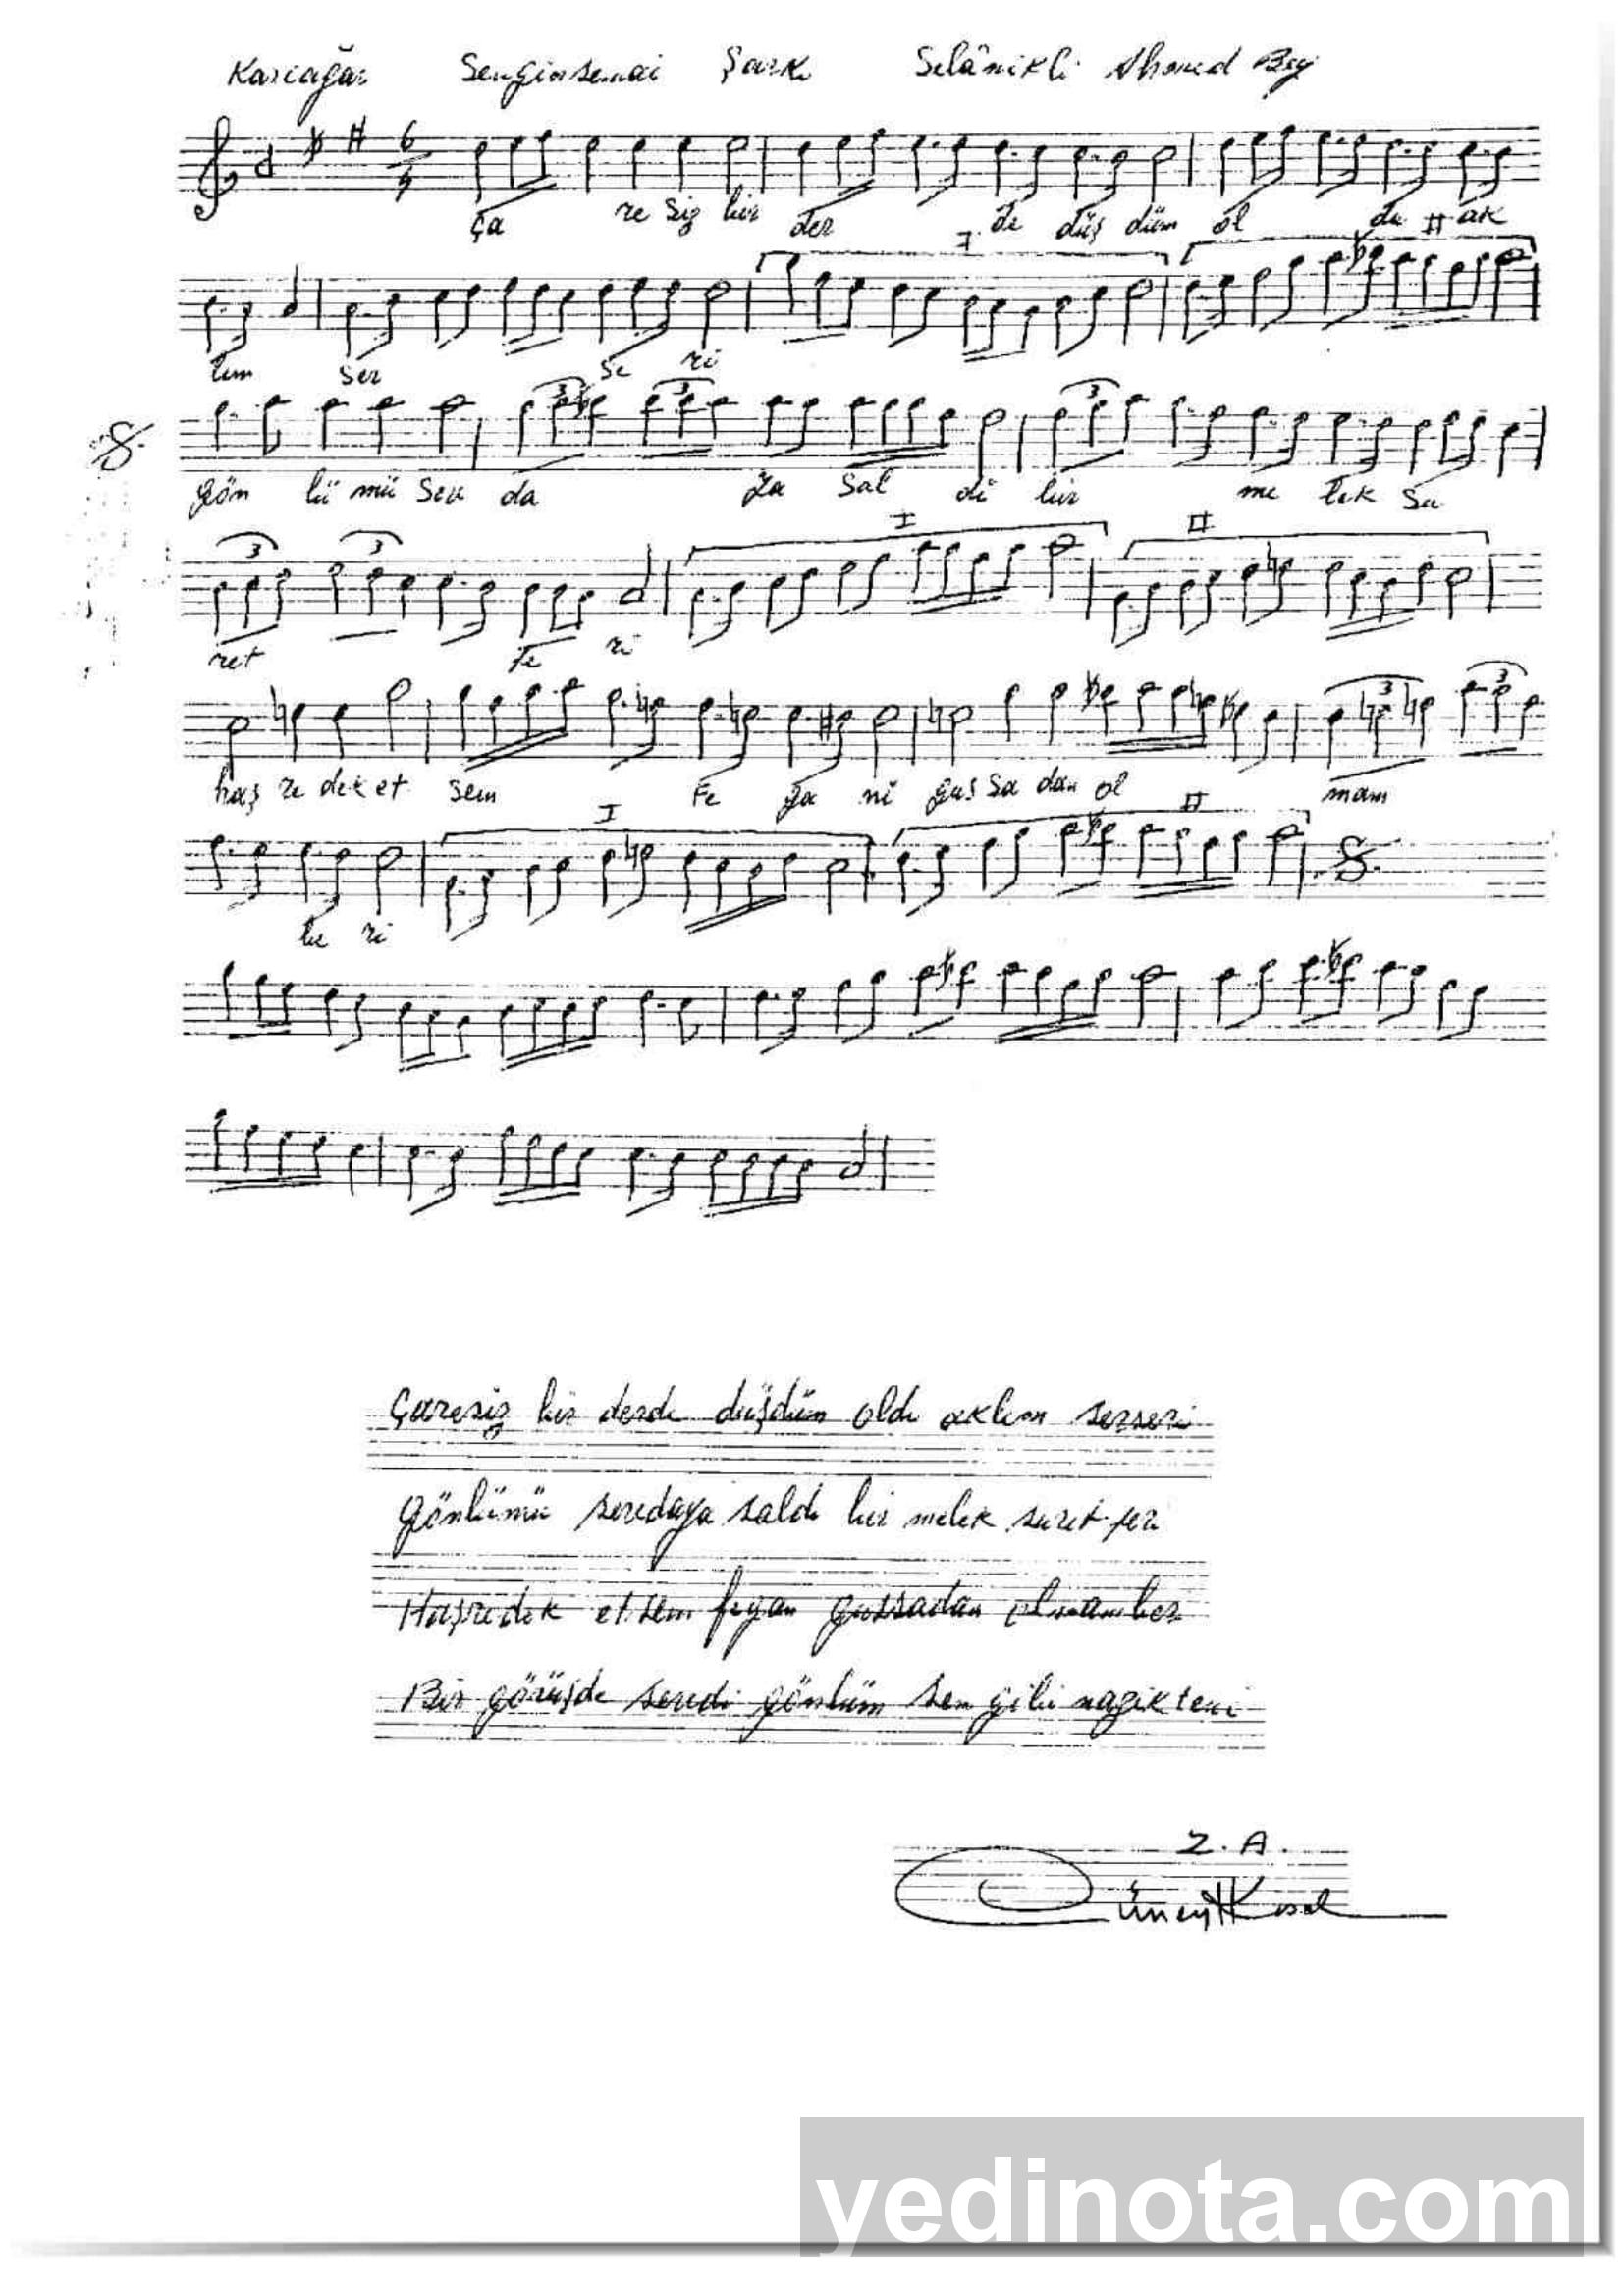 Karcığar Senginsemai Şarkı Selânikli Ahmed Bey
6
4
Ça re siz bir der de düş düm ol du ak
I II
lım ser se ri
3 3 3
gön lü mü sev da ya sal dı bir me lek su
3 3 I II
ret fe ri
3 3
haş re dek et sem Fe ga ni gus sa dan ol mam
I II
be ri
Çaresiz bir derde düşdüm oldı aklım serseri
Gönlümü sevdaya saldı bir melek suret feri
Haşredek etsem fegan gussadan olmam beri
Bir görüşde sevdi gönlüm sen gibi nazik teni
Z. A.
Cüneyt Kosal
yedinota.com